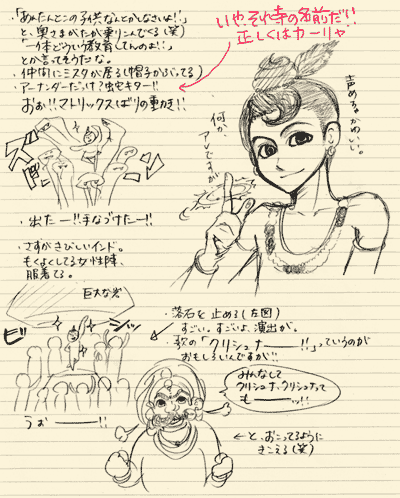 「あんたんとこの子供なんとかしなさいよ!」
と、奥さまがたが乗りこんでくる(笑)
「一体どういう教育してんのよ!!」
とか言ってそうだな。
・仲間にミスタが居る(帽子かぶってる)
・アーナンダーだっけ?虫它キター!!
おお!!マトリックスばりの動き!!
いや、それ寺の名前だい
正しくはカーリヤ
声めちゃかわいい。
何か、
アレですが
ズドドン
・出たー!!手なづけたー!!
・さすがきびしいインド。
もくよくしてる女性陣、
服着てる。
巨大な岩
ビ!!
ジャッ
・落石を止める(左図)
すごい。すごいよ、演出が。
・歌の「クリシュナーー!!」っていうのが
おもしろいんですが!!
みんなして
クリシュナ、クリシュナって
もーーッ!!
うおーーー!!
←と、おこってるように
きこえる(笑)